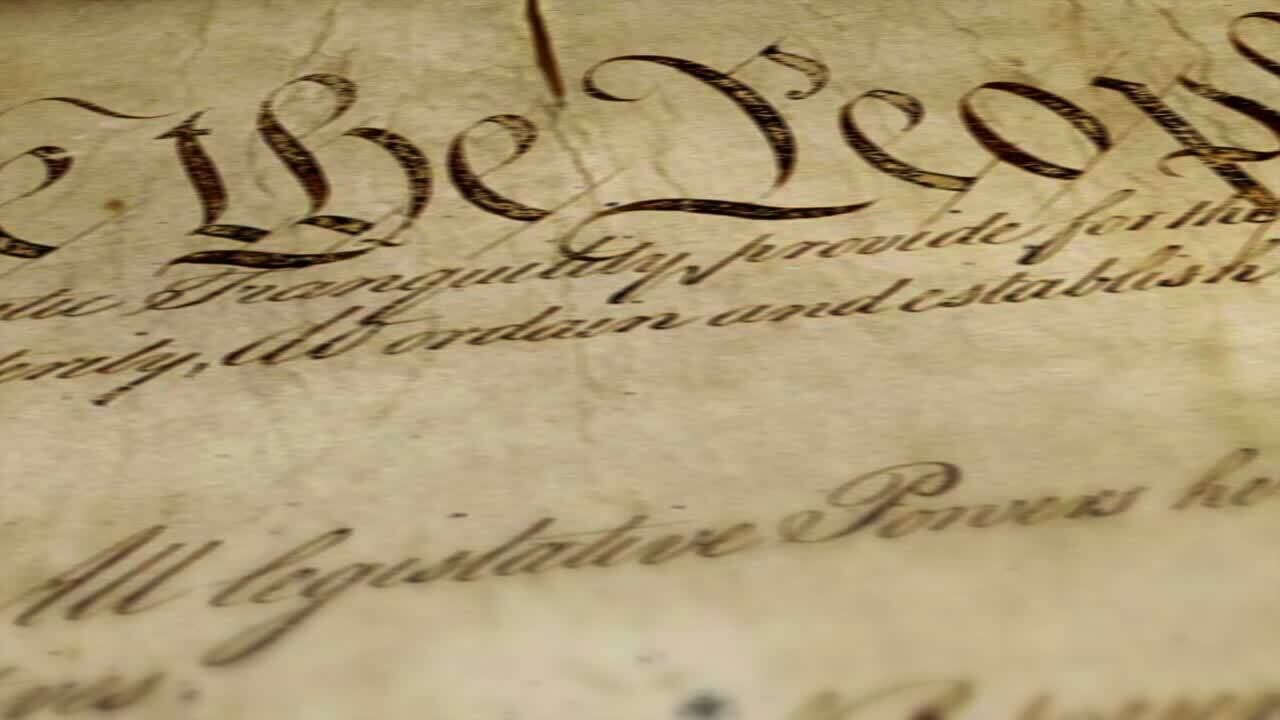 e the Peop
stic Tranquility, provide for the
terity, do ordain and establish
All legislative Powers he